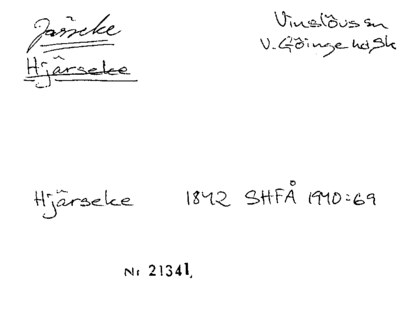 Jässeke
Hjärseke
Vinslövs sn
V. Göinge hd, Sk
Hjärseke 1842 SHFÅ 1940:69
Nr 21341,